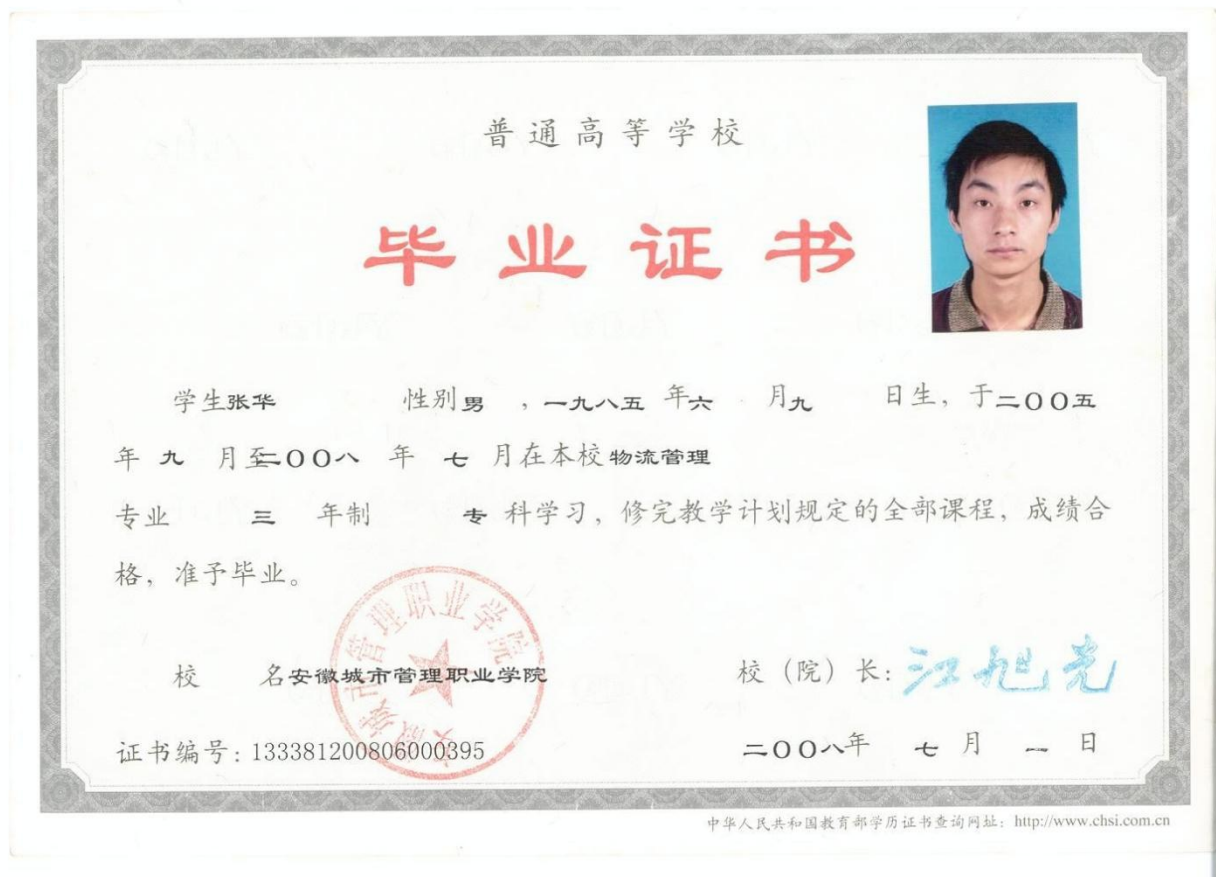 普通高等学校
毕业证书
学生张华 性别男 ,一九八五 年六 月九 日生，于二OO五
年 九 月至二OO八 年 七 月在本校物流管理
专业 三 年制 专 科学习，修完教学计划规定的全部课程，成绩合
格，准予毕业。
安徽城市管理职业学院
校 名安徽城市管理职业学院 校（院）长：江旭光
证书编号：133381200806000395 二OO八年 七 月 一 日
中华人民共和国教育部学历证书查询网址：http://www.chsi.com.cn